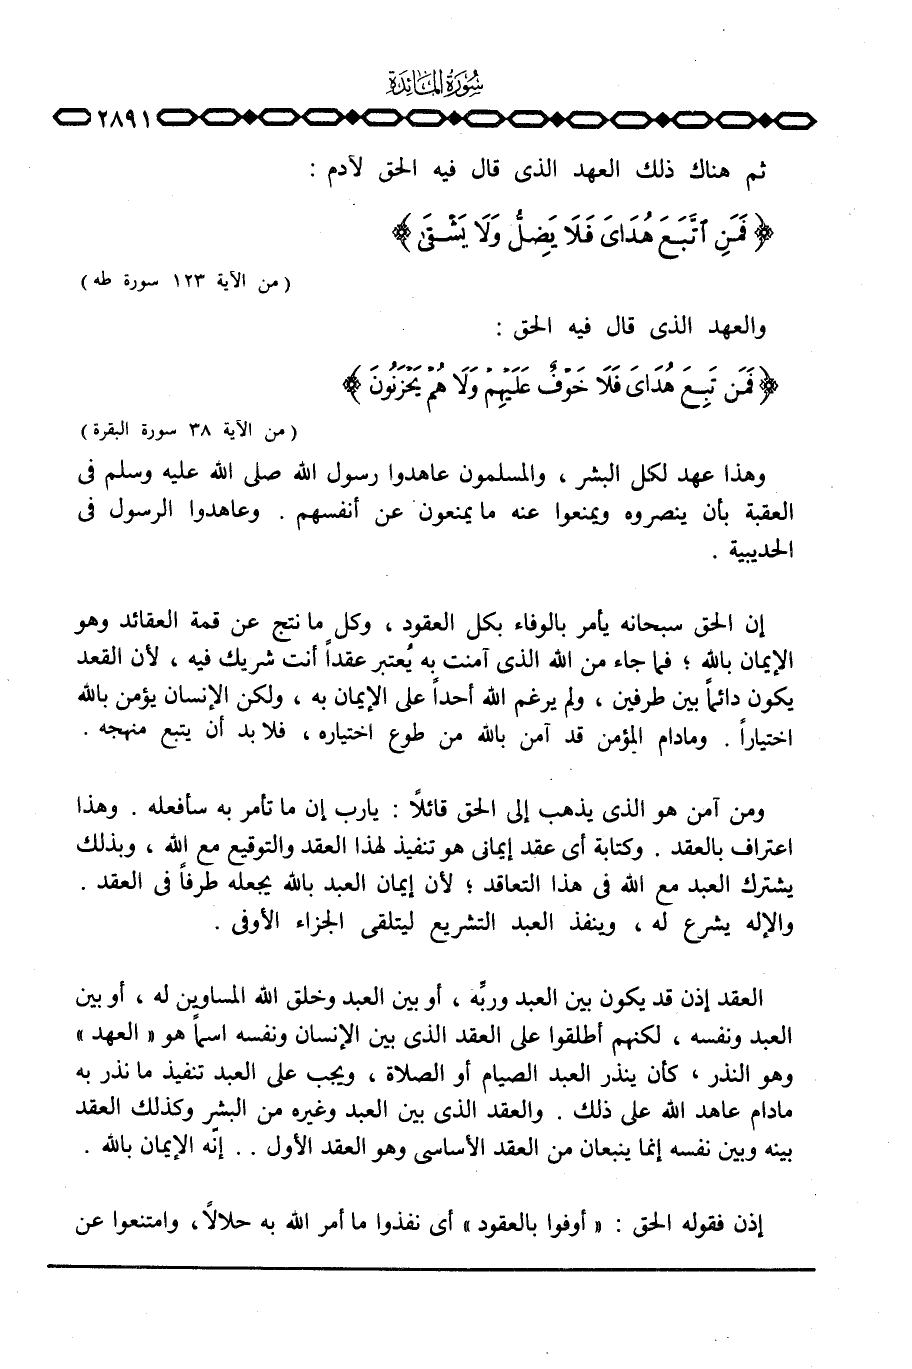 سُورَةُ المَائِدَةِ
٢٨٩١
ثم هناك ذلك العهد الذى قال فيه الحق لآدم :
﴿ فَمَنِ ٱتَّبَعَ هُدَاىَ فَلَا يَضِلُّ وَلَا يَشْقَىٰ ﴾
( من الآية ١٢٣ سورة طه )
والعهد الذى قال فيه الحق :
﴿ فَمَن تَبِعَ هُدَاىَ فَلَا خَوْفٌ عَلَيْهِمْ وَلَا هُمْ يَحْزَنُونَ ﴾
( من الآية ٣٨ سورة البقرة )
وهذا عهد لكل البشر ، والمسلمون عاهدوا رسول الله صلى الله عليه وسلم فى
العقبة بأن ينصروه ويمنعوا عنه ما يمنعون عن أنفسهم . وعاهدوا الرسول فى
الحديبية .
إن الحق سبحانه يأمر بالوفاء بكل العقود ، وكل ما نتج عن قمة العقائد وهو
الإيمان بالله ؛ فما جاء من الله الذى آمنت به يُعتبر عقداً أنت شريك فيه ، لأن القعد
يكون دائماً بين طرفين ، ولم يرغم الله أحداً على الإيمان به ، ولكن الإنسان يؤمن بالله
اختياراً . ومادام المؤمن قد آمن بالله من طوع اختياره ، فلا بد أن يتبع منهجه .
ومن آمن هو الذى يذهب إلى الحق قائلاً : يارب إن ما تأمر به سأفعله . وهذا
اعتراف بالعقد . وكتابة أى عقد إيمانى هو تنفيذ لهذا العقد والتوقيع مع الله ، وبذلك
يشترك العبد مع الله فى هذا التعاقد ؛ لأن إيمان العبد بالله يجعله طرفاً فى العقد .
والإله يشرع له ، وينفذ العبد التشريع ليتلقى الجزاء الأوفى .
العقد إذن قد يكون بين العبد وربِّه ، أو بين العبد وخلق الله المساوين له ، أو بين
العبد ونفسه ، لكنهم أطلقوا على العقد الذى بين الإنسان ونفسه اسماً هو « العهد »
وهو النذر ، كأن ينذر العبد الصيام أو الصلاة ، ويجب على العبد تنفيذ ما نذر به
مادام عاهد الله على ذلك . والعقد الذى بين العبد وغيره من البشر وكذلك العقد
بينه وبين نفسه إنما ينبعان من العقد الأساسى وهو العقد الأول .. إنّه الإيمان بالله .
إذن فقوله الحق : « أوفوا بالعقود » أى نفذوا ما أمر الله به حلالاً ، وامتنعوا عن